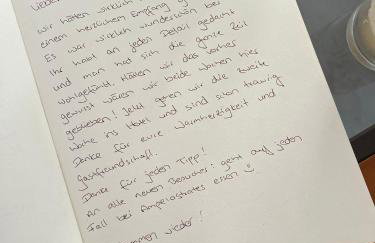 Liebe
wir hätten wirklich
einem herzlichen Empfang
Es war wirklich wunderschön bei
Ihr habt an jedes Detail gedacht
und man hat sich die ganze Zeit
wohlgefühlt. Hätten wir das vorher
gewusst wären wir beide Wochen hier
geblieben! Jetzt gehen wir die zweite
Woche ins Hotel und sind schon traurig
Danke für eure Warmherzigkeit und
Gastfreundschaft.
Danke für jeden Tipp!
An alle neuen Besucher: geht auf jeden
Fall bei essen
kommen wieder!